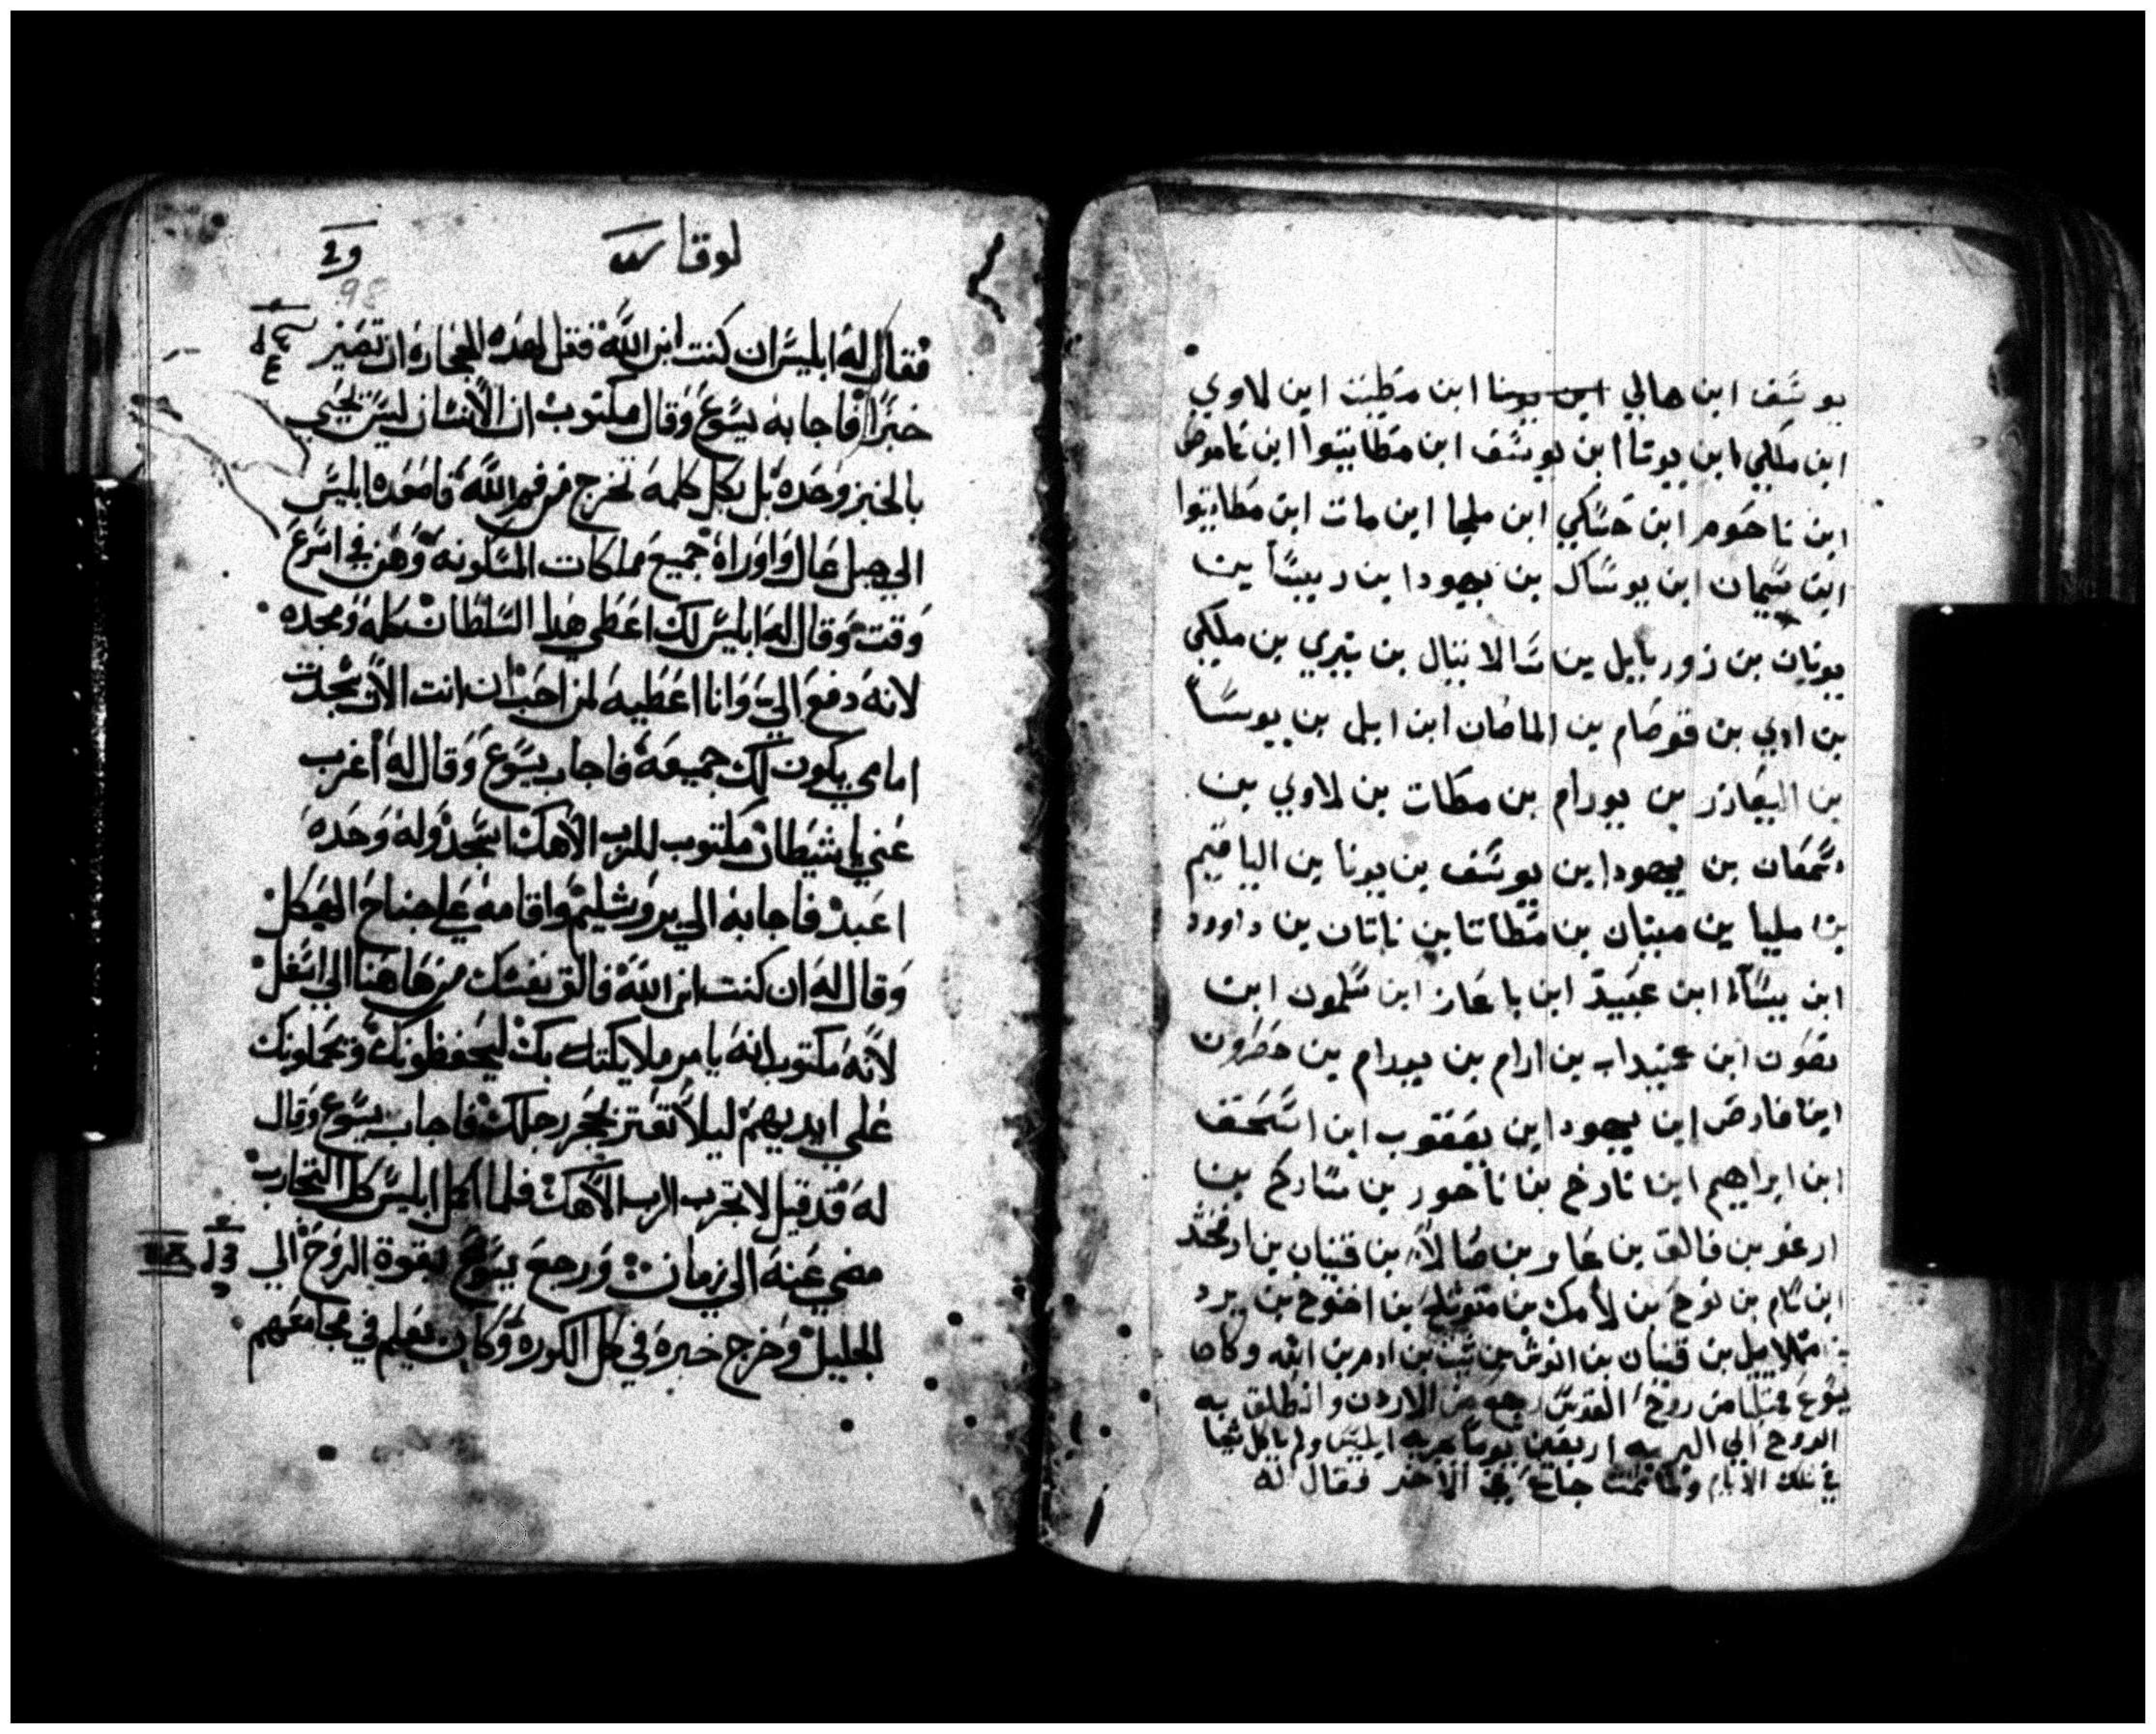 يوسف ابن هالي ابن يونا ابن مطيت ابن لاوي
ابن ملكي ابن يوتا ابن يوسف ابن مطاتيوا ابن ناموص
ابن ناحوم ابن حسكي ابن ملحا ابن مات ابن مطاتيوا
ابن شمان ابن يوساك بن يهودا بن ريسا بن
يونان بن زوربابيل بن شالاتيال بن نيري بن ملكي
بن ادي بن قوصام بن الماضان ابن ايل بن يوسا
بن اليعازر بن يورام بن مطات بن لاوي بن
شمعان بن يهودا بن يوسف بن يونا بن الياقيم
بن مليا بن مينان بن مطاتا بن ناتان بن داوود
ابن يسا ابن عبيد ابن باعاز ابن سلمون ابن
نصون ابن عميداب بن ارام بن يورام بن حصرون
ابن فارص ابن يهودا بن يعقوب ابن اسحق
ابن ابراهيم ابن تارخ بن ناحور بن ساركم بن
ارغو بن فالق بن عابر بن صالا بن قينان بن ارفخشد
ابن سام بن نوح بن لامك بن متوشلح بن اخنوخ بن يرد
بن مهلاييل بن قينان بن انوش بن شيت بن ادم بن الله وكان
يسوع ممتليا من روح القدس رجع من الاردن وانطلق به
الروح الي البريه اربعين يوما يجربه ابليس ولم ياكل شيا
في تلك الايام ولما تمت جاع في الاخر فقال له
لوقا
98
فقال له ابليس ان كنت ابن الله فقل لهذه الحجاره ان تصير
خبزا فاجابه يسوع وقال مكتوب ان الانسان ليس يحيي
بالخبز وحده بل بكل كلمه تخرج من فم الله فاصعده ابليس
الي جبل عال واوراه جميع مملكات المسكونه وهن في اسرع
وقت وقال له ابليس لك اعطي هذا السلطان كله ومجده
لانه دفع الي وانا اعطيه لمن احب ان انت الان سجدت
امامي يكون لك جميعه فاجاب يسوع وقال له اغرب
عني يا شيطان مكتوب للرب الاهك اسجد وله وحده
اعبد فاجابه الي يروشليم واقامه علي جناح الهيكل
وقال له ان كنت ابن الله فالق نفسك من هاهنا الي اسفل
لانه مكتوب انه يامر ملايكته بك ليحفظونك ويحملونك
علي ايديهم ليلا تعتر بحجر رجلك فاجاب يسوع وقال
له قد قيل لا تجرب الرب الاهك فلما اكمل ابليس كل التجارب
مضي عنه الي زمان ورجع يسوع بقوة الروح الي
الجليل وخرج خبره في كل الكوره وكان يعلم في مجامعهم